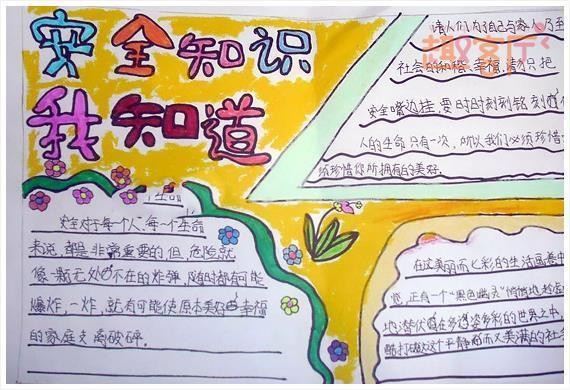 安全知识
我知道
趣客厅
请人们为了自己与家人乃至
社会的和稳、幸福,请别只把
安全嘴边挂,要时时刻刻铭刻
人的生命只有一次,所以我们必须珍惜
珍惜你所拥有的美好.
生命
安全对于每个人每一个生命
来说,都是非常重要的但,危险就
像一颗无处不在的炸弹,随时都有可能
爆炸,一炸,就有可能使原本美好幸福
的家庭支离破碎.
在这美丽而七彩的生活画卷中
正有一个"黑色幽灵"悄悄地
地潜伏在多姿多彩的世界之中,
打破这个平静而又美满的社会